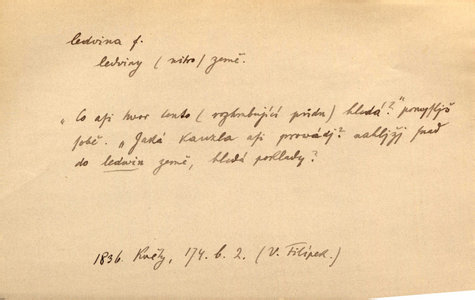 ledvina f.
ledviny (nitro) země.
"Co asi tvor tento (rozhrabující půdu) hledá?" pomyslil
sobě. "Jaká kouzla asi provádí? nahlíží snad
do ledvin země, hledá poklady?
1836. Květy, 174. b. 2. (V. Filípek.)